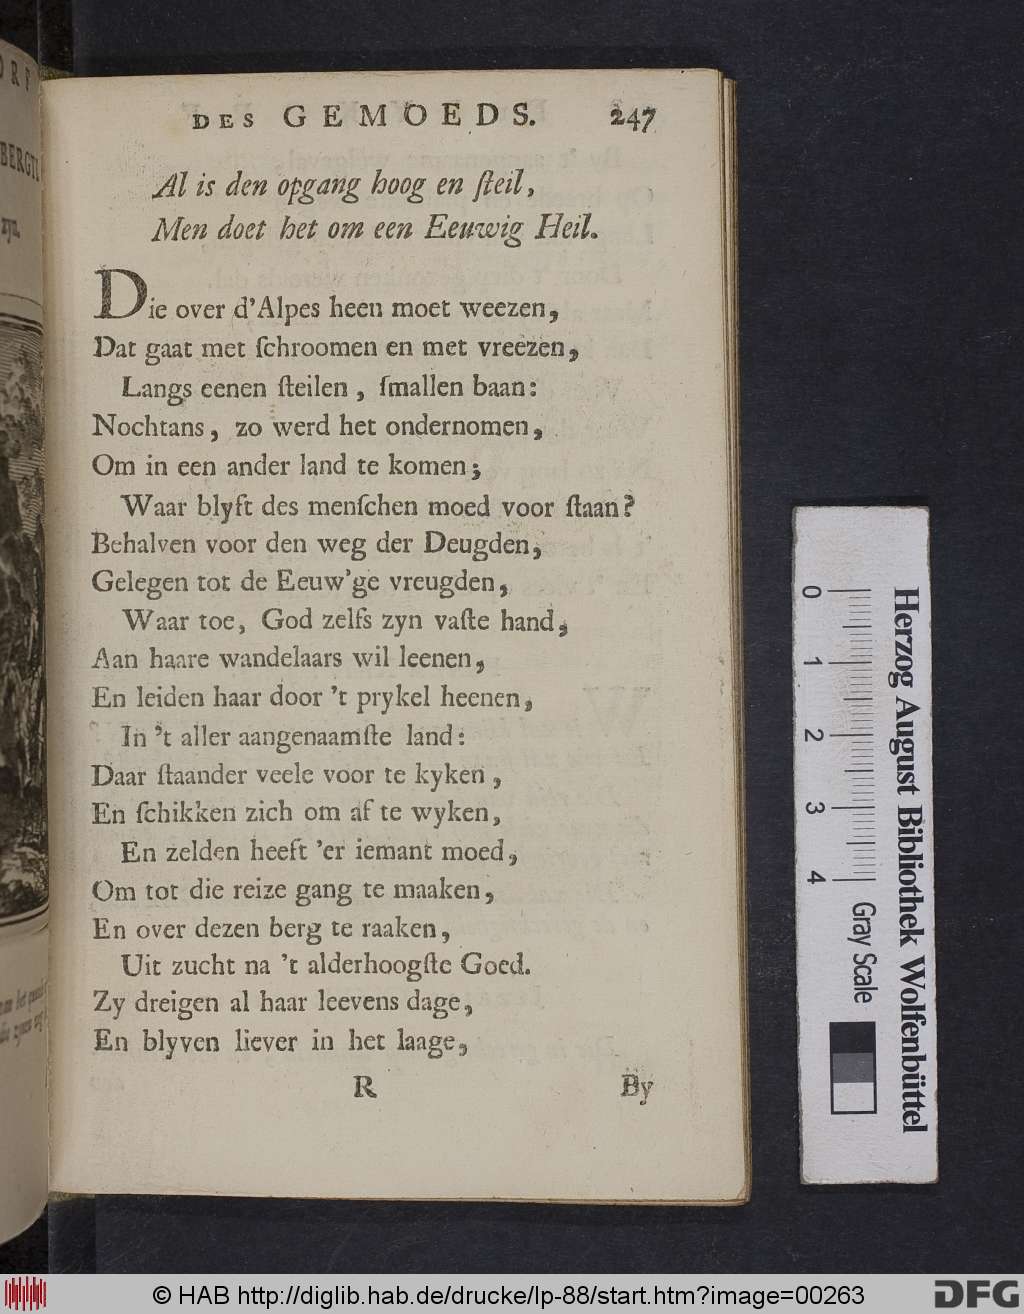 DES GEMOEDS. 247
Al is den opgang hoog en ſteil,
Men doet het om een Eeuwig Heil.
Die over d'Alpes heen moet weezen,
Dat gaat met ſchroomen en met vreezen,
Langs eenen ſteilen, ſmallen baan:
Nochtans, zo werd het ondernomen,
Om in een ander land te komen;
Waar blyft des menſchen moed voor ſtaan?
Behalven voor den weg der Deugden,
Gelegen tot de Eeuw'ge vreugden,
Waar toe, God zelfs zyn vaſte hand,
Aan haare wandelaars wil leenen,
En leiden haar door 't prykel heenen,
In 't aller aangenaamſte land:
Daar ſtaander veele voor te kyken,
En ſchikken zich om af te wyken,
En zelden heeft 'er iemant moed,
Om tot die reize gang te maaken,
En over dezen berg te raaken,
Uit zucht na 't alderhoogſte Goed.
Zy dreigen al haar leevens dage,
En blyven liever in het laage,
R By
ORF
BERGTE
zyn.
0 1 2 3 4
Gray Scale
Herzog August Bibliothek Wolfenbüttel
© HAB http://diglib.hab.de/drucke/lp-88/start.htm?image=00263
DFG